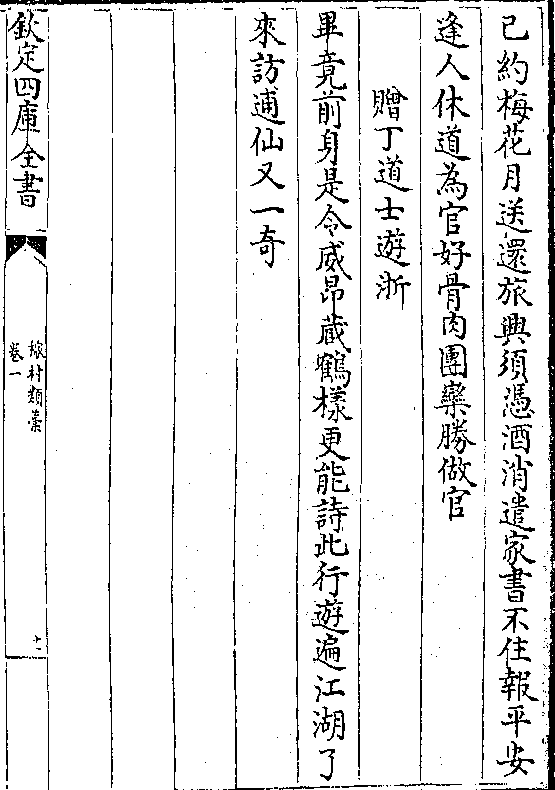 已約梅花月送還旅興須憑酒消遣家書不住報平安
逢人休道為官好骨肉團欒勝做官
贈丁道士遊浙
畢竟前身是令威昂藏鶴樣更能詩此行遊遍江湖了
來訪逋仙又一奇
欽定四庫全書
梅村類藁
卷一
十一